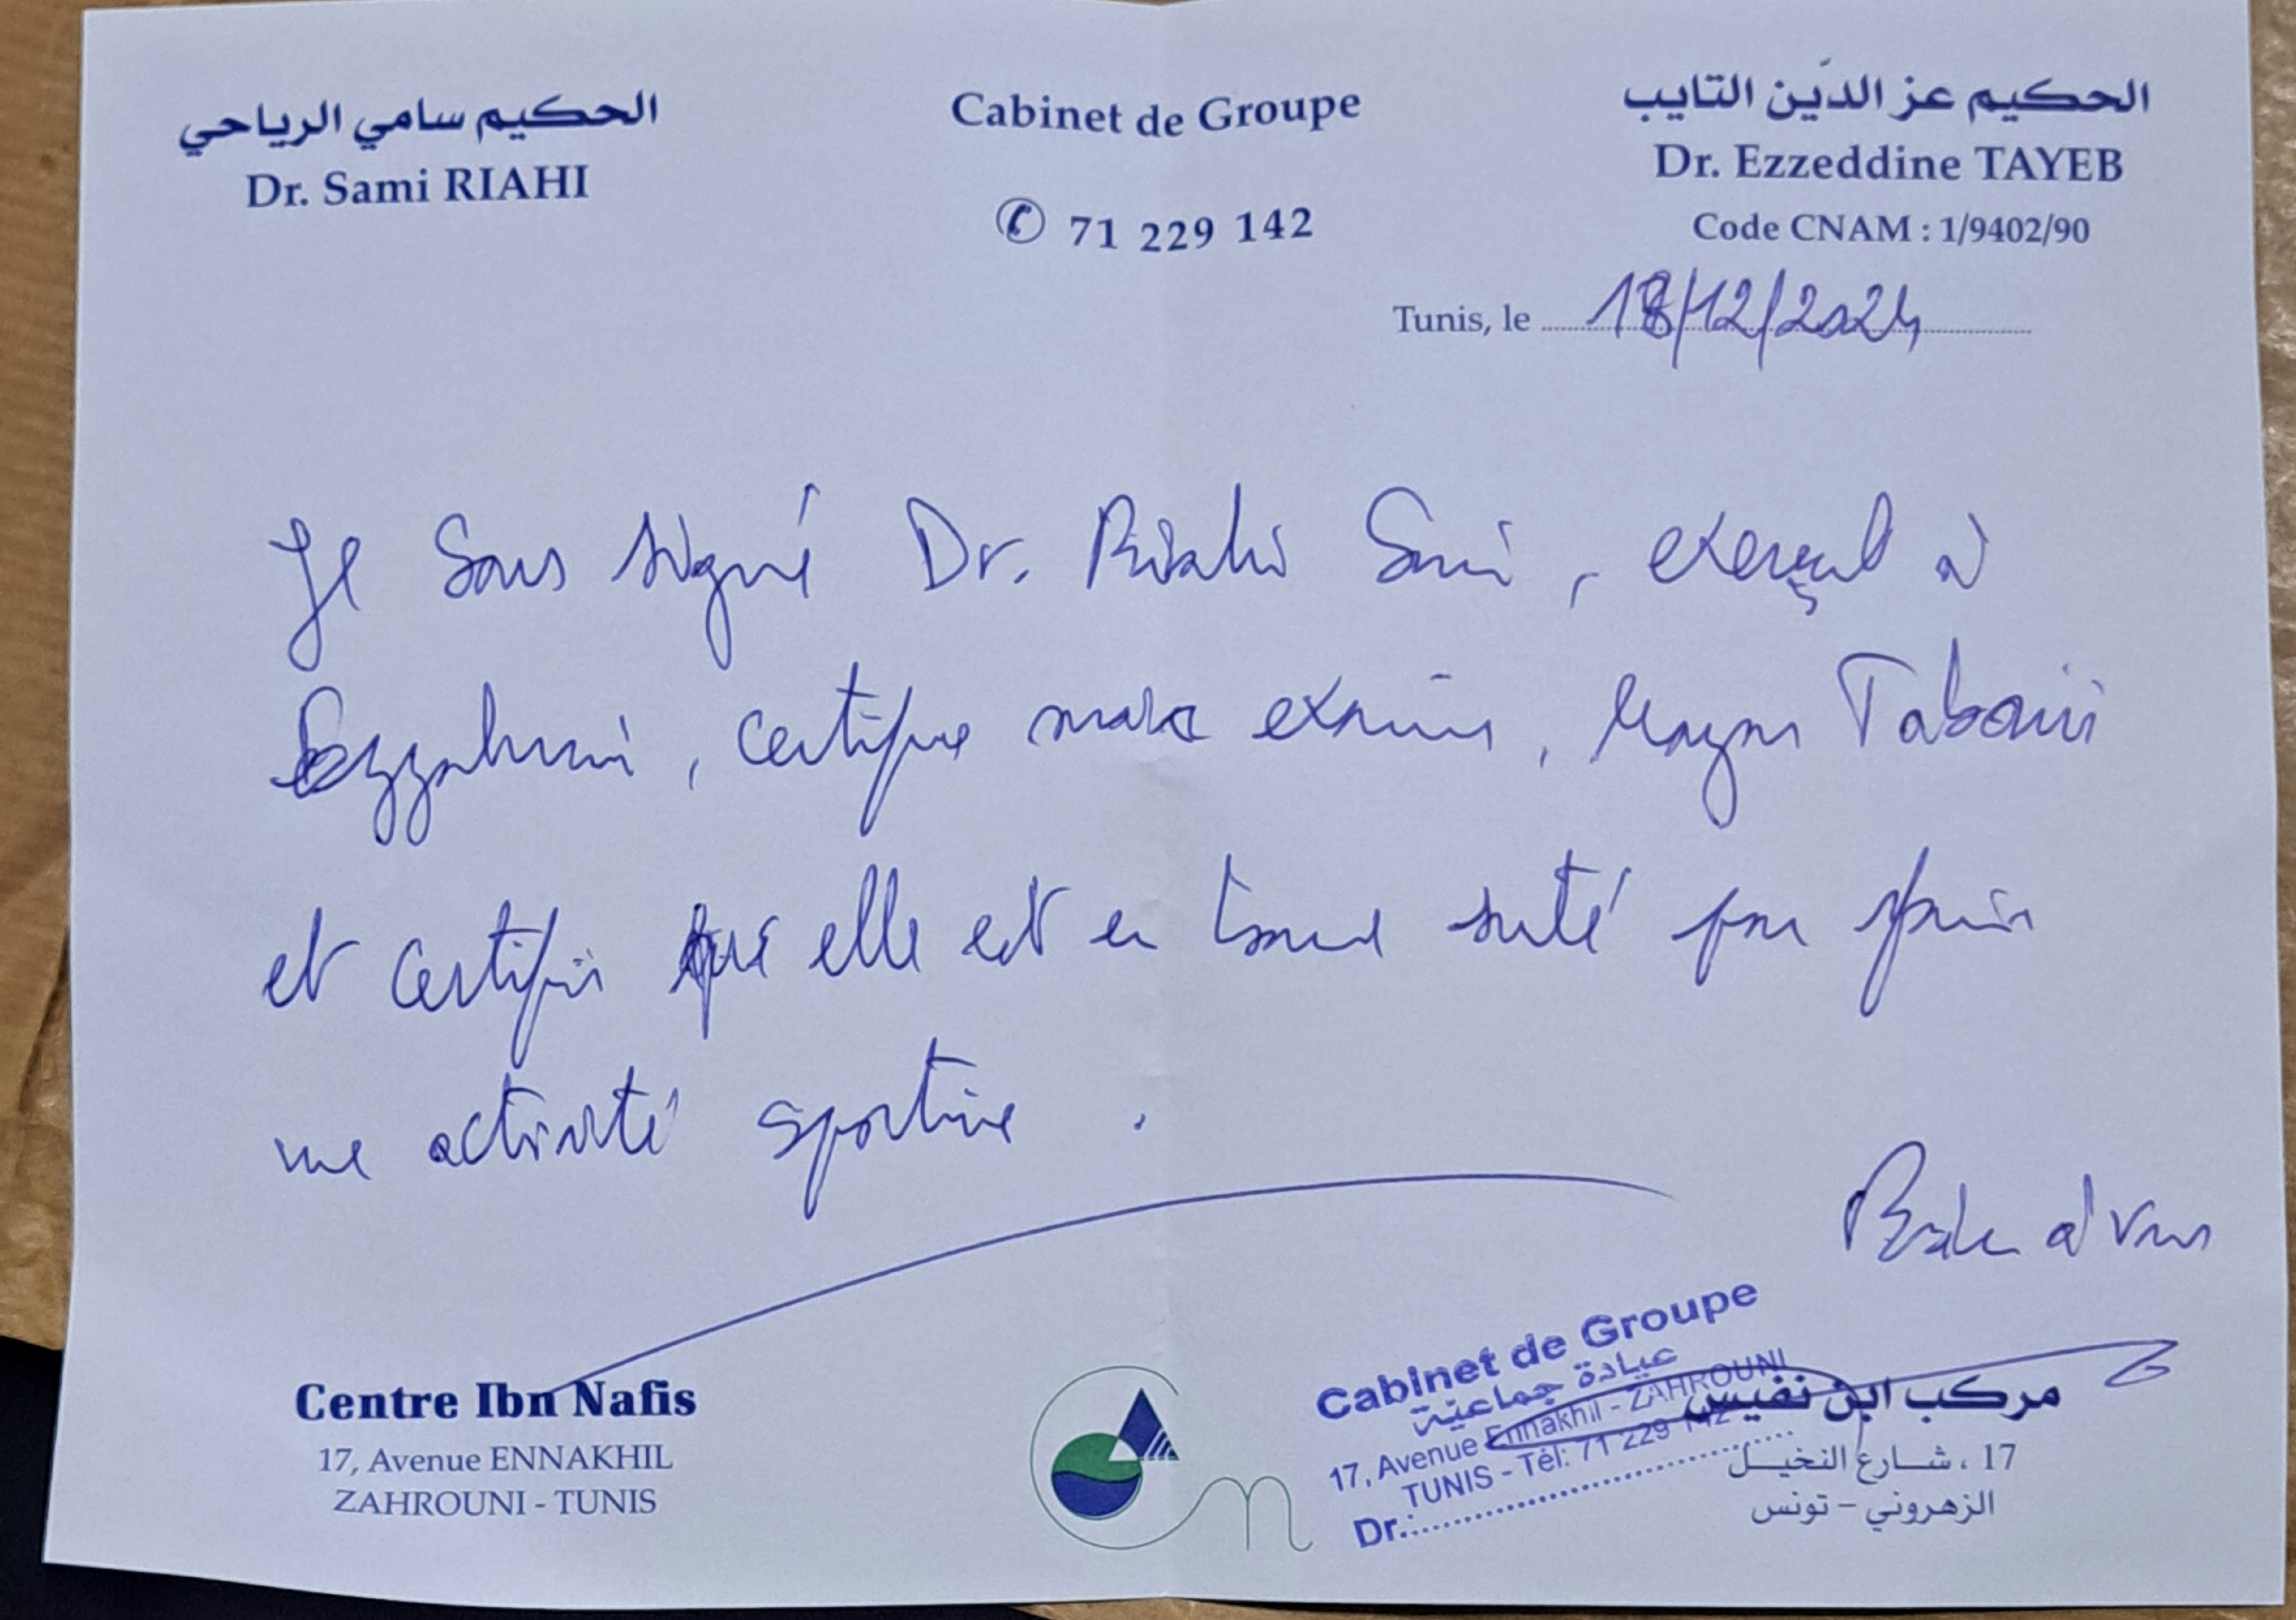 الحكيم سامي الرياحي
Dr. Sami RIAHI
Cabinet de Groupe
✆ 71 229 142
الحكيم عز الدّين التايب
Dr. Ezzeddine TAYEB
Code CNAM : 1/9402/90
Tunis, le 18/12/2024
Je Sous signé Dr. Riahi Sami, exerçant à
Ezzahrouni, certifie avoir examiné, Taboui
et certifie que elle est en bonne santé pour
une activité sportive.
Centre Ibn Nafis
17, Avenue ENNAKHIL
ZAHROUNI - TUNIS
Cabinet de Groupe
عيادة جماعية
17, Avenue Ennakhil - ZAHROUNI
TUNIS - Tél: 71 229 142
Dr.:
مركب ابن نفيس
17 ، شارع النخيل
الزهروني - تونس